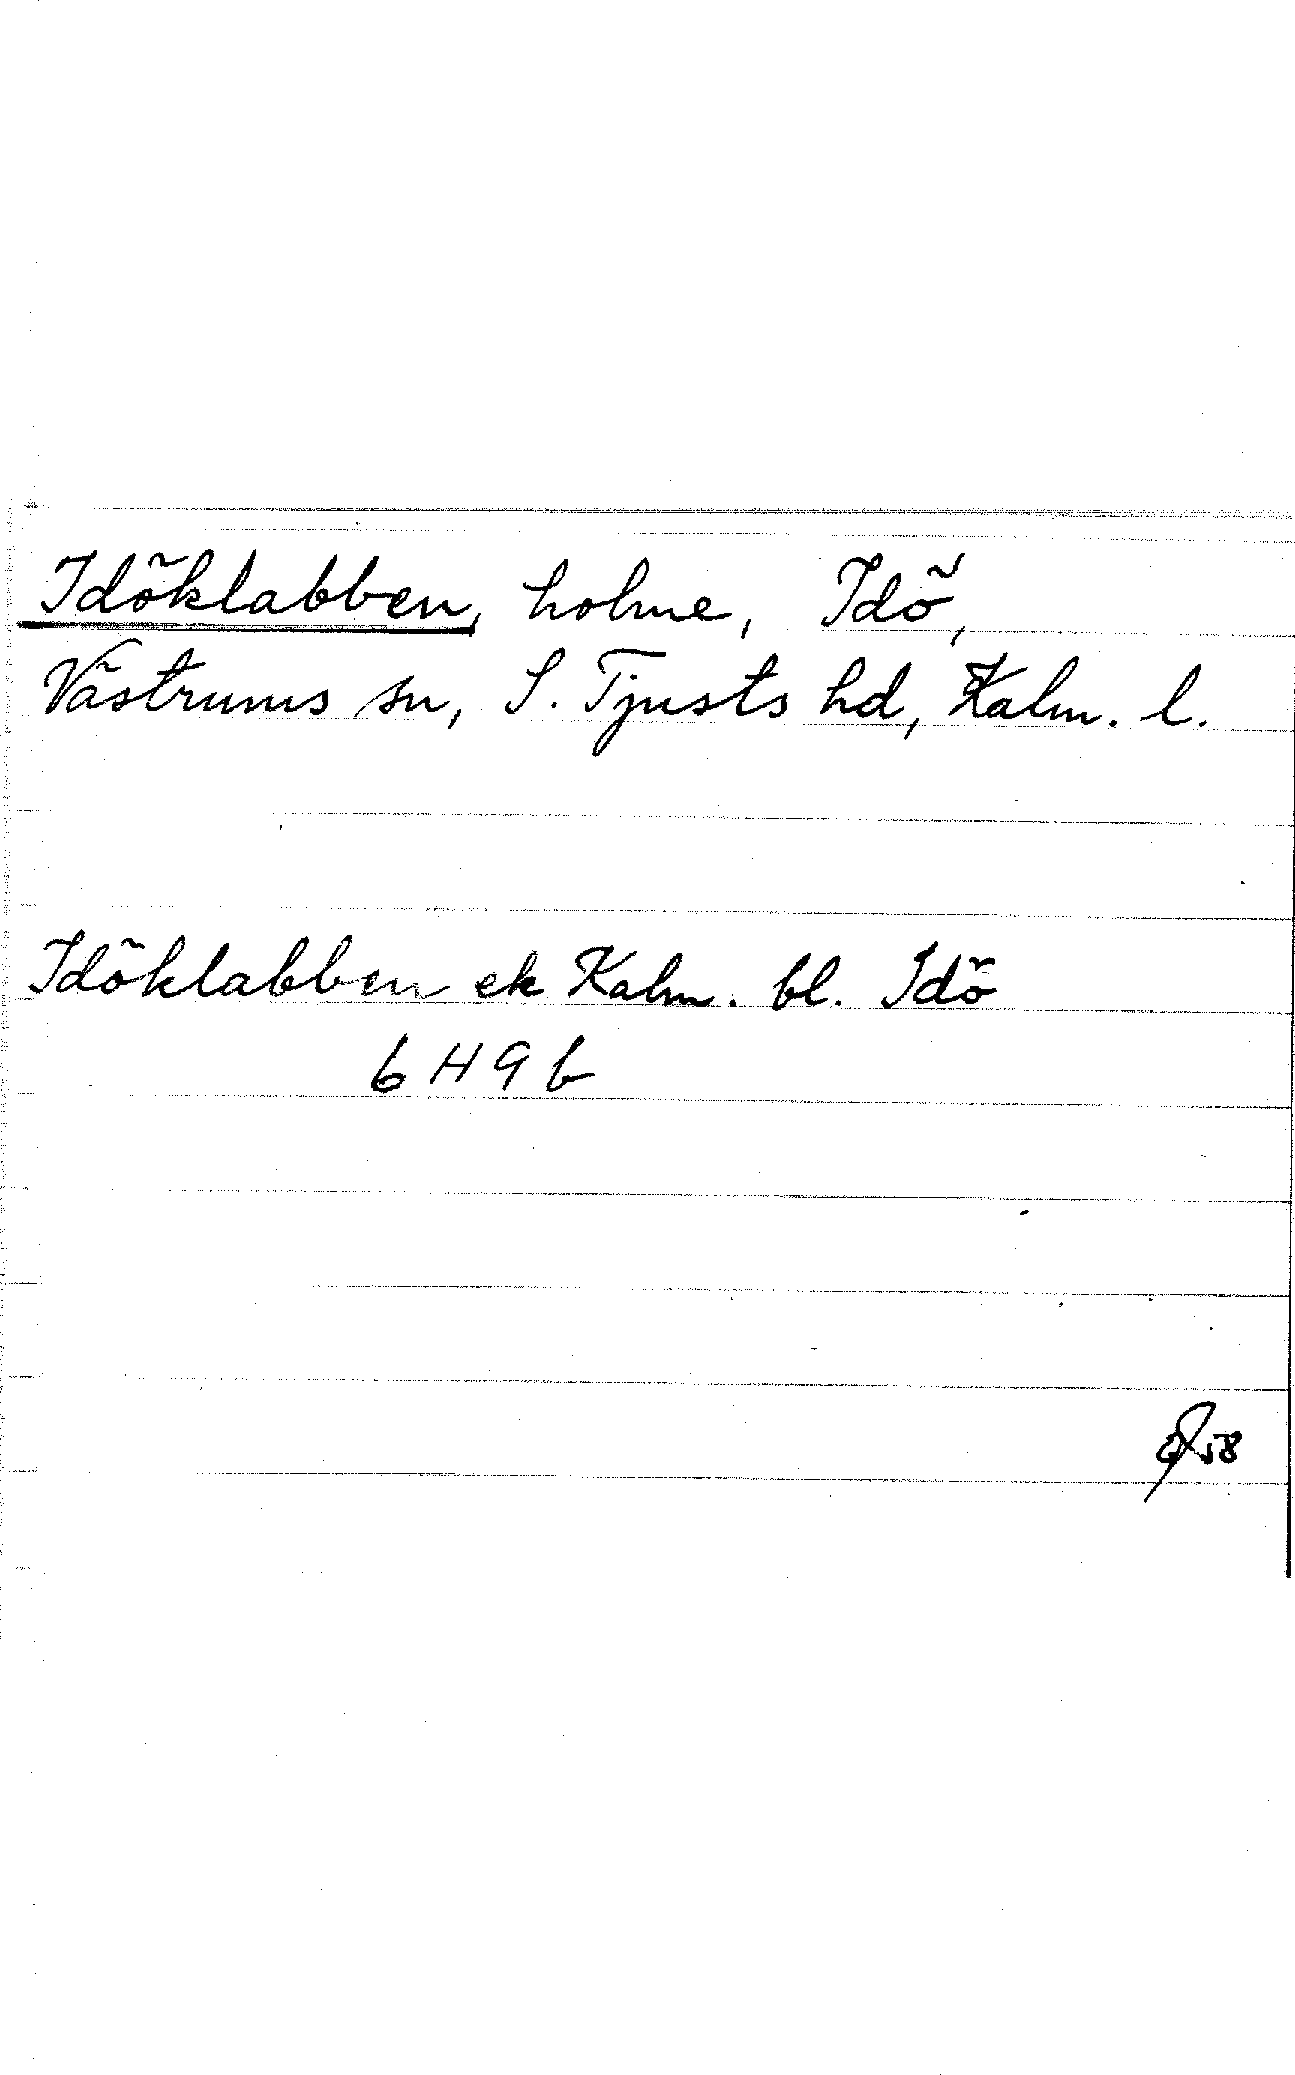 Idöklabben, holme, Idö,
Västrums sn, S. Tjusts hd, Kalm. l.
Idöklabben ek Kalm. bl. Idö
6 H 9 b
58